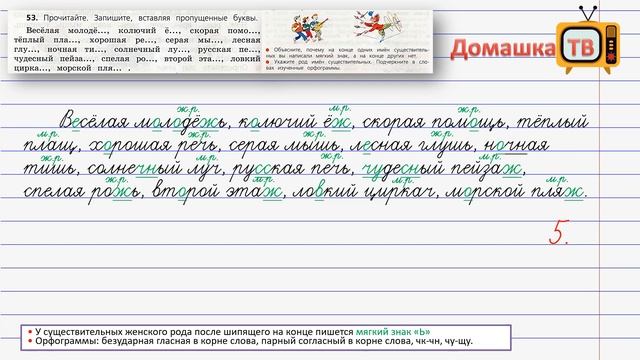 53. Прочитайте. Запишите, вставляя пропущенные буквы.
Весёлая молодё..., колючий ё..., скорая помо...,
тёплый пла..., хорошая ре..., серая мы..., лесная
глу..., ночная ти..., солнечный лу..., русская пе...,
чудесный пейза..., спелая ро..., второй эта..., ловкий
цирка..., морской пля... .
• Объясните, почему на конце одних имён существитель-
ных вы написали мягкий знак, а на конце других нет.
• Укажите род имён существительных. Подчеркните в сло-
вах изученные орфограммы.
Домашка
ТВ
ж.р. м.р. ж.р.
Весёлая молодёжь, колючий ёж, скорая помощь, тёплый
м.р. ж.р. ж.р. ж.р.
плащ, хорошая речь, серая мышь, лесная глушь, ночная
ж.р. м.р. ж.р. м.р.
тишь, солнечный луч, русская печь, чудесный пейзаж,
ж.р. м.р. м.р. м.р.
спелая рожь, второй этаж, ловкий циркач, морской пляж.
5.
• У существительных женского рода после шипящего на конце пишется мягкий знак «Ь»
• Орфограммы: безударная гласная в корне слова, парный согласный в корне слова, чк-чн, чу-щу.